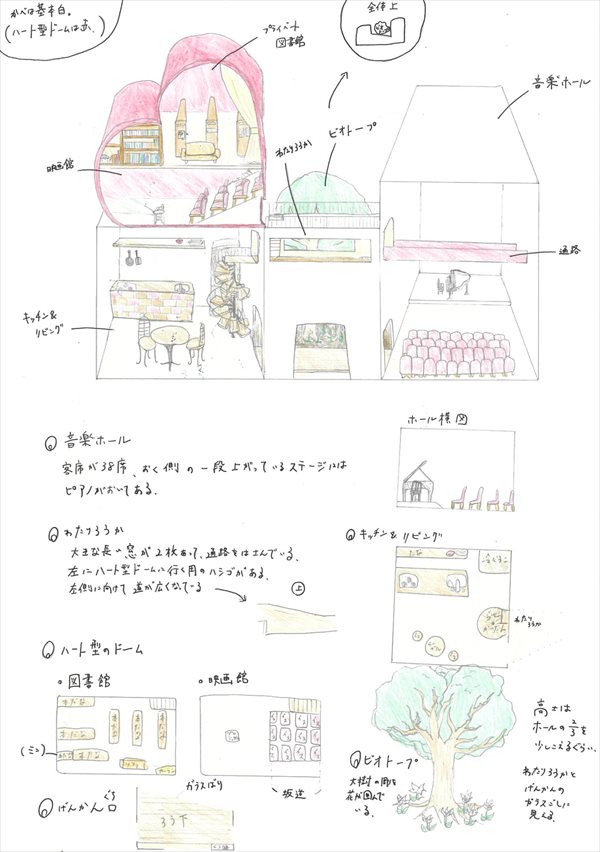 かべは基本白。
(ハート型ドームは赤。)
全体上
プライベート
図書館
音楽ホール
ビオトープ
わたりろうか
映画館
通路
キッチン&
リビング
音楽ホール
客席が38席、おく側の一段上がっているステージには
ピアノがおいてある。
ホール横図
わたりろうか
大きな長い窓が2枚あって、通路をはさんでいる。
左にハート型ドームに行く用のハシゴがある。
左側に向けて道が広くなっている
上
キッチン&リビング
たな
わたりろうか
ハート型のドーム
図書館
映画館
本だな
本だな
本だな
本だな
本だな
本だな
(ミニ)
ソファ
カーテン
イス
坂道
げんかん口
ガラスばり
ろう下
ビオトープ
大樹の周を
花が囲んで
いる。
高さは
ホールの2/3を
少しこえるぐらい。
わたりろうかと
げんかんの
ガラスごしに
見える。